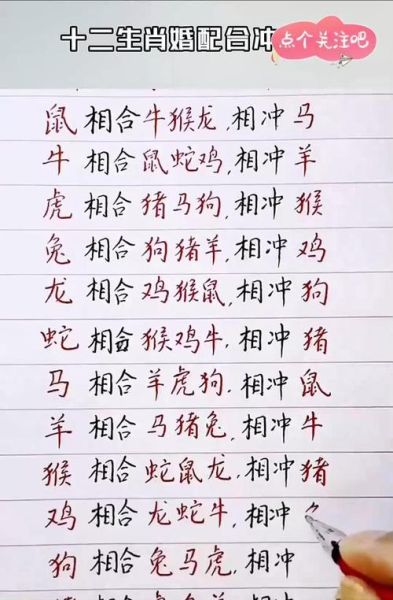 十二生肖婚配合冲
点个关注吧
鼠相合牛猴龙,相冲马
牛相合鼠蛇鸡,相冲羊
虎相合猪马狗,相冲猴
兔相合狗猪羊,相冲鸡
龙相合鸡猴鼠,相冲狗
蛇相合猴鸡牛,相冲猪
马相合羊虎狗,相冲鼠
羊相合马猪兔,相冲牛
猴相合蛇鼠龙,相冲猪
鸡相合龙蛇牛,相冲
狗相合兔马虎,相冲